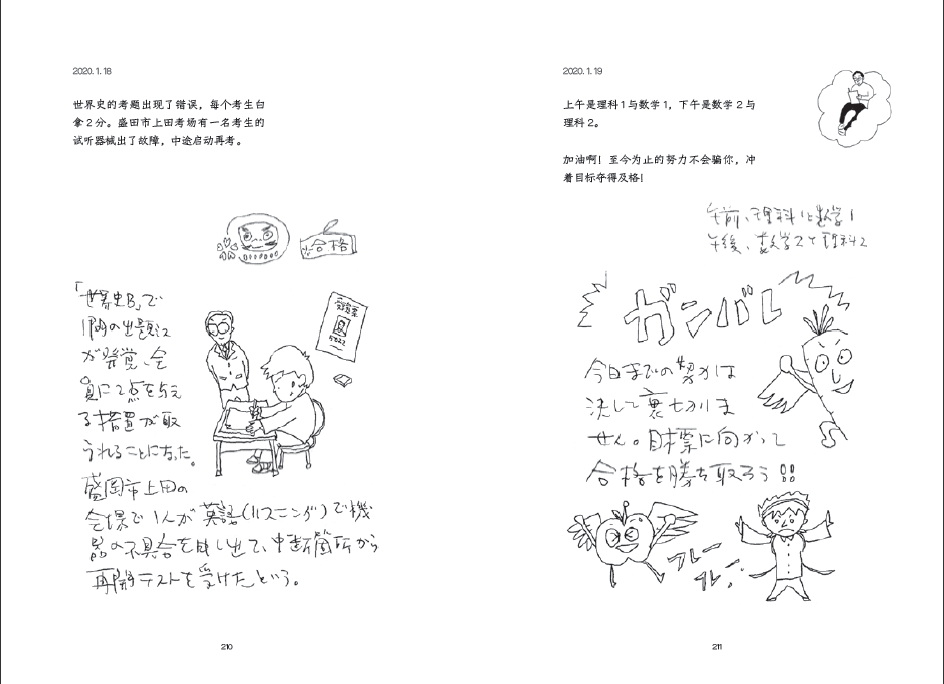 2020.1.18
世界史的考题出现了错误，每个考生白
拿2分。盛田市上田考场有一名考生的
试听器械出了故障，中途启动再考。
合格
「世界史B」で
1問の出題ミス
が発覚、全
員に2点を与え
る措置が取
られることになった。
盛岡市上田の
会場で1人が英語(リスニング)で機
器の不具合を申し出て、中断箇所から
再開テストを受けたという。
受験票
5022
210
2020.1.19
上午是理科1与数学1，下午是数学2与
理科2。
加油啊！至今为止的努力不会骗你，冲
着目标夺得及格！
午前、理科1と数学1
午後、数学2と理科2
ガンバレ
今日までの努力は
決して裏切りま
せん。目標に向かって
合格を勝ち取ろう!!
フレー
フレー
211